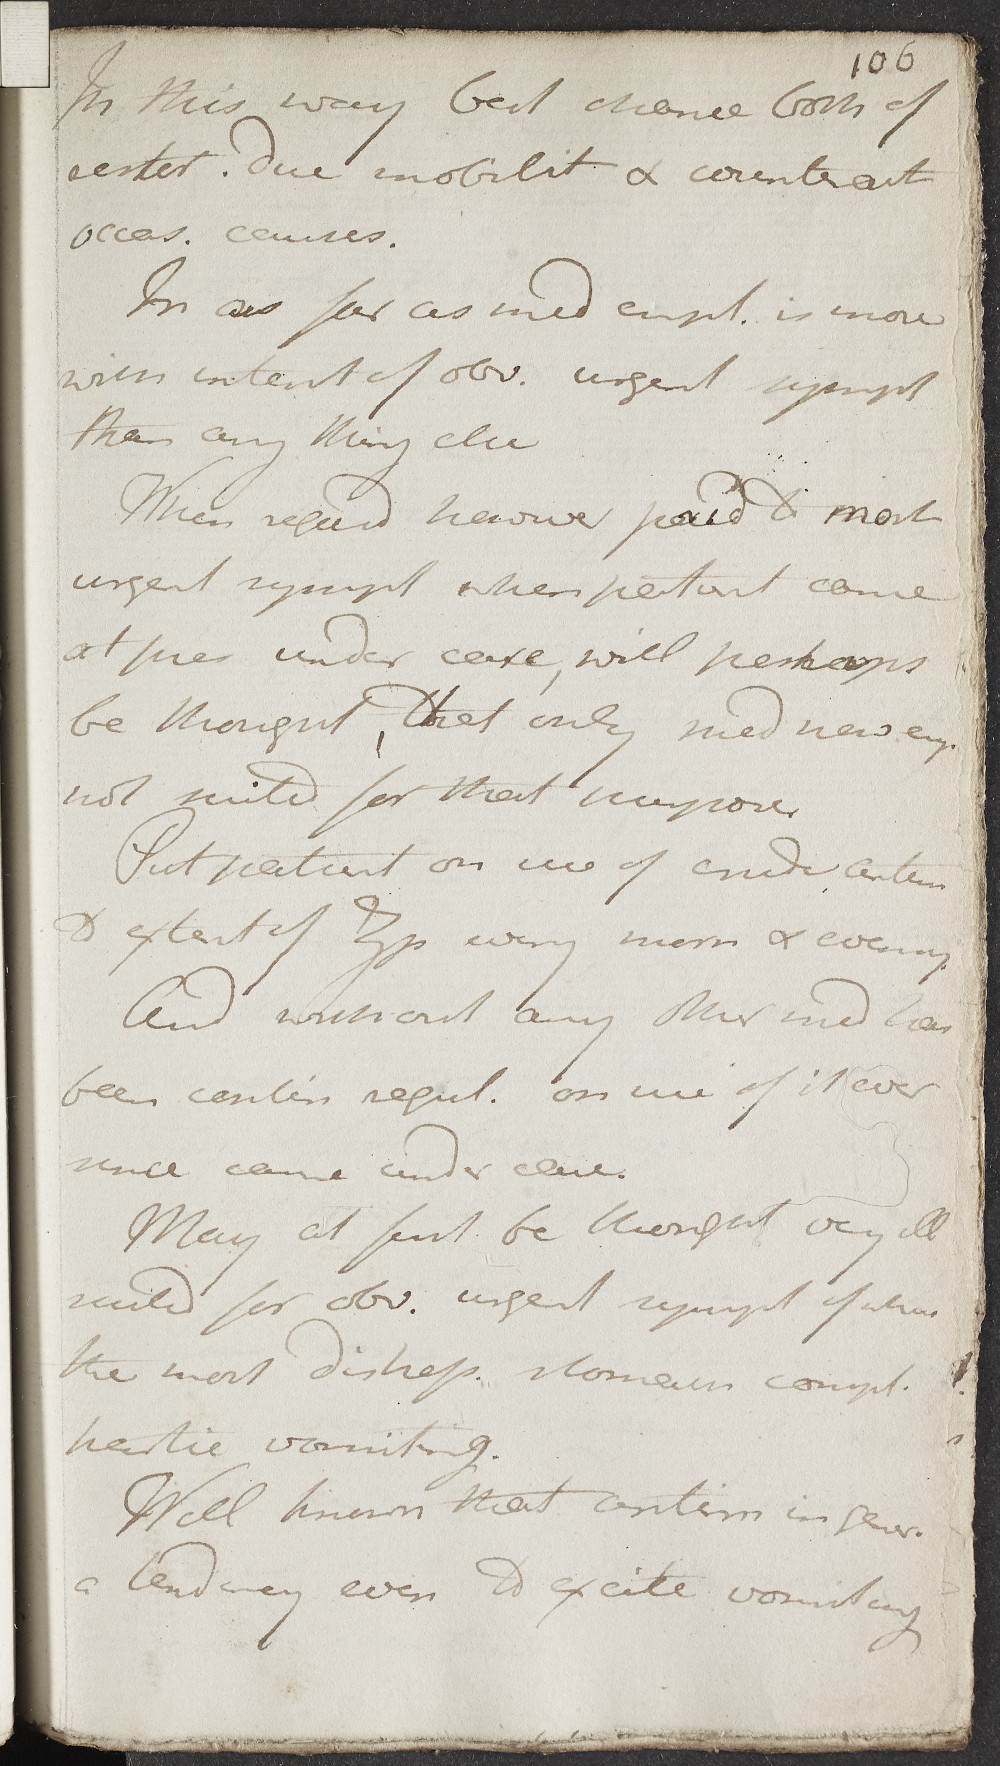 106
In this way best chance both of
restor. due mobilit & counteract
occas. causes.
In as far as med empl. is more
with intent of obv. urgent sympt
than any thing else
When regard however paid to most
urgent sympt when patient came
at first under care, will perhaps
be thought, that only med now emp.
not suited for that purpose
Put patient on use of crude antim
to extent of ʒſs every morn & evening.
And without any other med has
been contin regul. on use of it ever
since came under care.
May at first be thought very ill
suited for obv. urgent sympt of whch
the most distress. stomach compl.
partic vomiting.
Well known that antim in gener.
a tendency even to excite vomiting